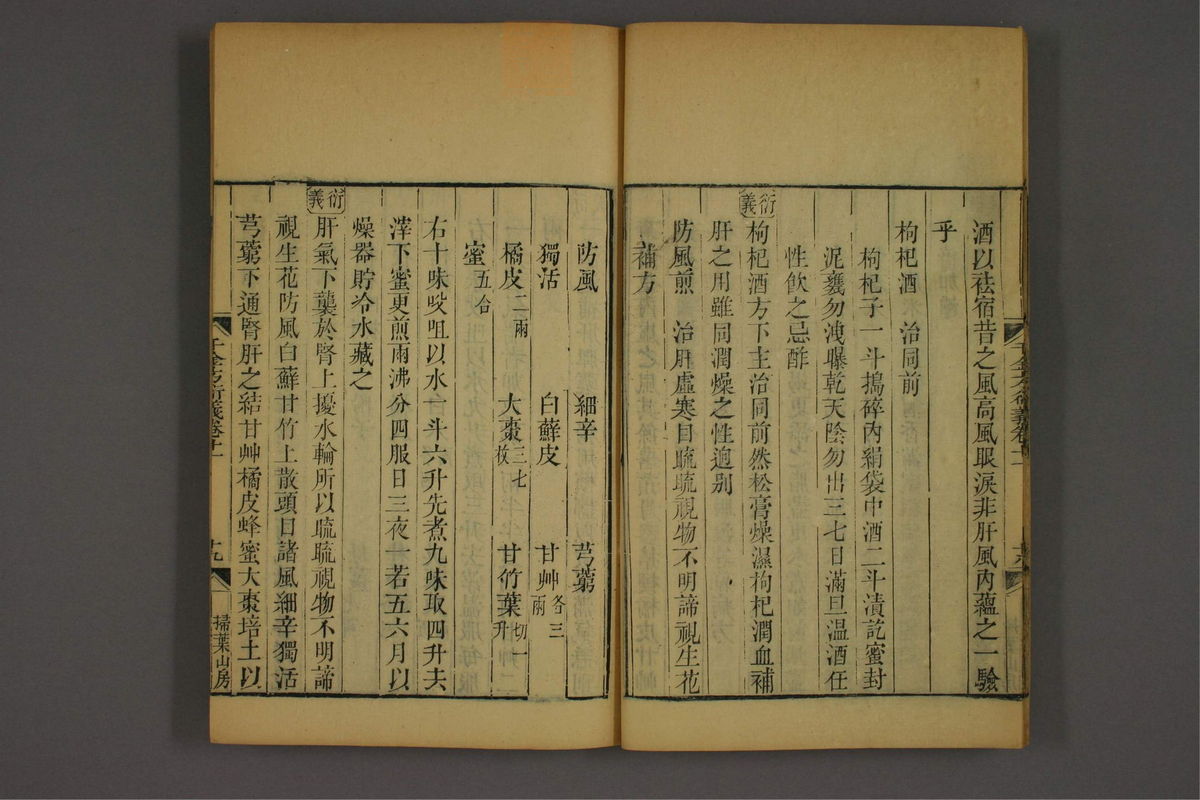 酒以祛宿昔之風高風眼淚非肝風內蘊之一驗
乎
枸杞酒　治同前
枸杞子一斗搗碎內絹袋中酒二斗漬訖蜜封
泥甕勿洩曝乾天陰勿出三七日滿旦温酒任
性飲之忌酢
衍義
枸杞酒方下主治同前然松膏燥濕枸杞潤血補
肝之用雖同潤燥之性逈别
防風煎　治肝虛寒目䀮䀮視物不明諦視生花
補方
防風　細辛　芎藭
獨活　白蘚皮　甘艸各三兩
橘皮二兩　大棗三七枚　甘竹葉切一升
蜜五合
右十味㕮咀以水一斗六升先煮九味取四升去
滓下蜜更煎兩沸分四服日三夜一若五六月以
燥器貯冷水藏之
衍義
肝氣下襲於腎上擾水輪所以䀮䀮視物不明諦
視生花防風白蘚甘竹上散頭目諸風細辛獨活
芎藭下通腎肝之結甘艸橘皮蜂蜜大棗培土以
千金方衍義卷十一
十九
掃葉山房